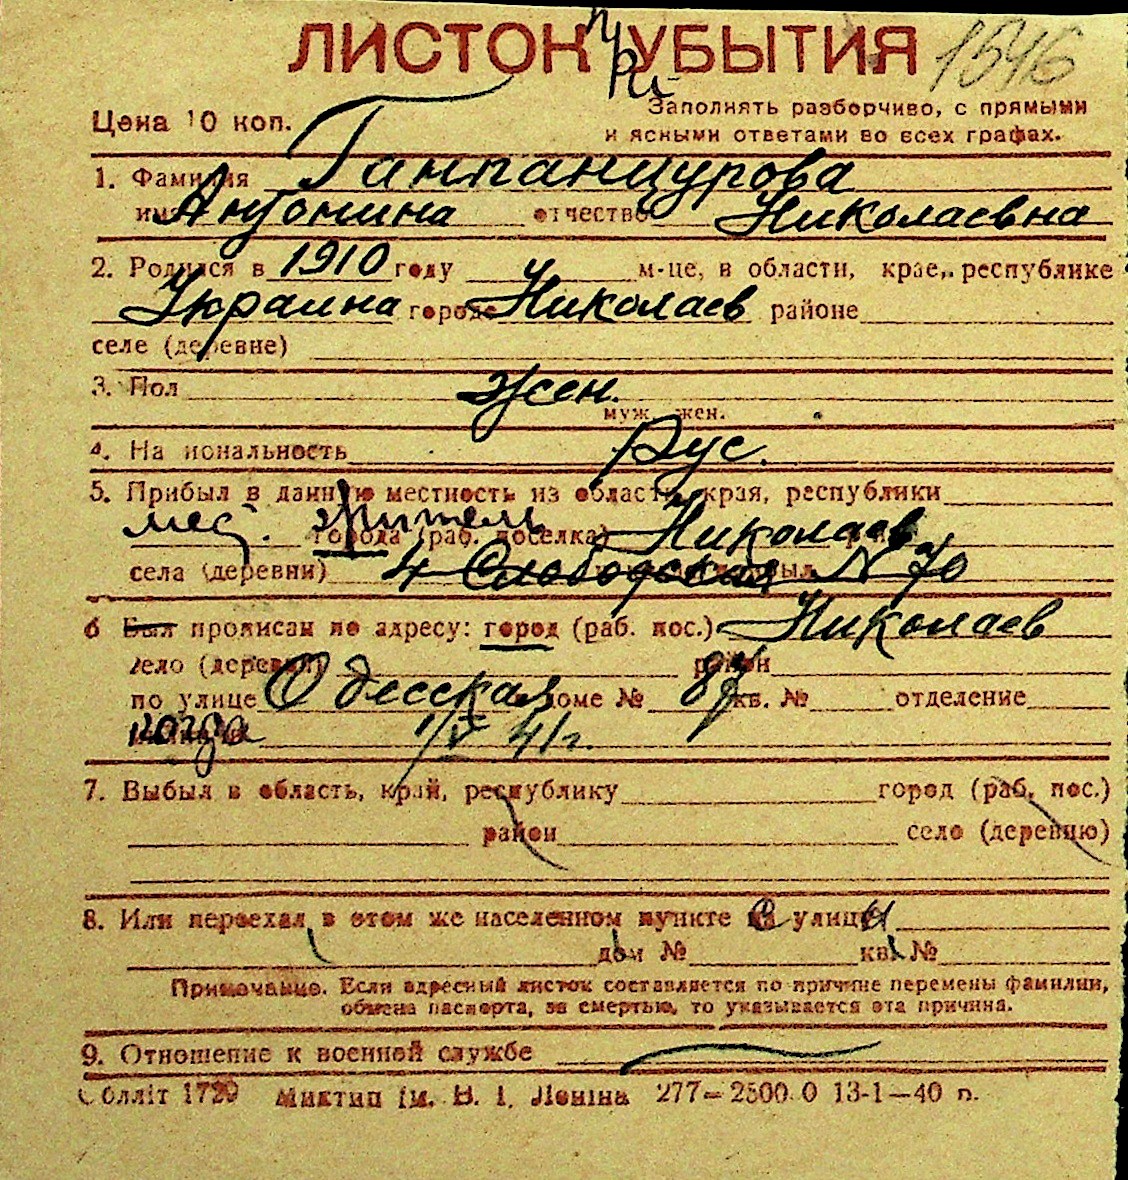 ЛИСТОК при УБЫТИЯ 1546
Цена 10 коп. Заполнять разборчиво, с прямыми
и ясными ответами во всех графах.
1. Фамилия Ганпанцурова
имя Антонина отчество Николаевна
2. Родился в 1910 году м-це, в области, крае, республике
Украина городе Николаев районе
селе (деревне)
3. Пол жен.
муж. жен.
4. Национальность Рус.
5. Прибыл в данную местность из области, края, республики
мес. житель города (раб. поселка) Николаев
села (деревни) 4 Слободская N 70
6 Был прописан по адресу: город (раб. пос.) Николаев
село (деревня) район
по улице Одесская доме № 87 кв. № отделение
когда 1/V 41 г.
7. Выбыл в область, край, республику город (раб. пос.)
район село (деревню)
8. Или переехал в этом же населенном пункте с улицы
дом № кв. №
Примечание. Если адресный листок составляется по причине перемены фамилии,
обмена паспорта, за смертью, то указывается эта причина.
9. Отношение к военной службе
Облліт 1720 Миктип ім. В. І. Леніна 277—2500.0 13-1—40 п.